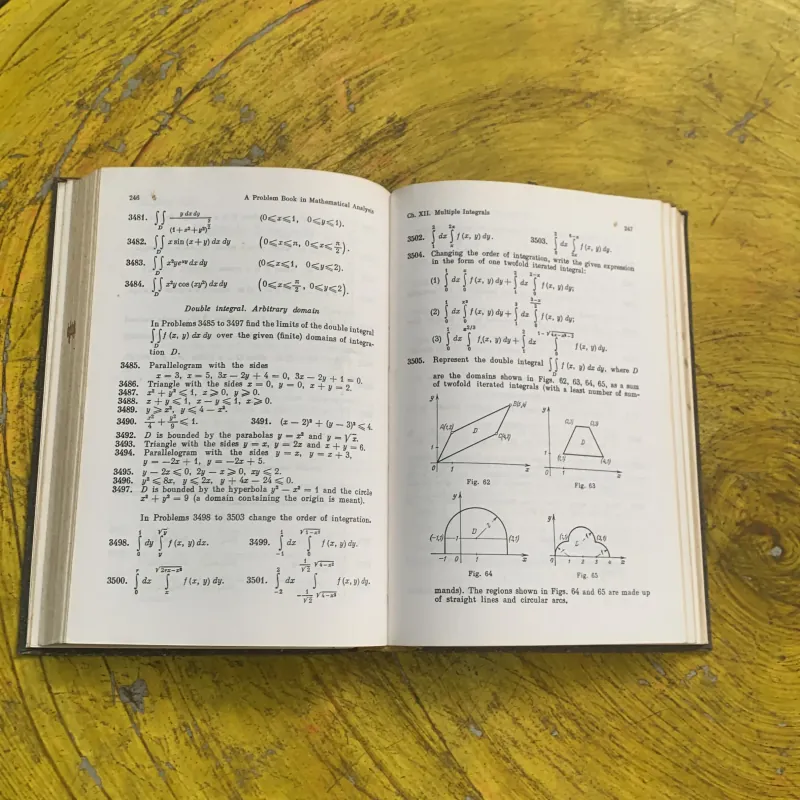 246
A Problem Book in Mathematical Analysis
3481. ∬_D y dx dy / (1+x²+y²)^{3/2} (0⩽x⩽1, 0⩽y⩽1).
3482. ∬_D x sin (x+y) dx dy
3483. ∬_D x²ye^{xy} dx dy (0⩽x⩽1, 0⩽y⩽2).
3484. ∬_D x²y cos (xy²) dx dy (0⩽x⩽π/2, 0⩽y⩽2).
Double integral. Arbitrary domain
In Problems 3485 to 3497 find the limits of the double integral
∬_D f (x, y) dx dy over the given (finite) domains of integra-
tion D.
3485. Parallelogram with the sides
x = 3, x = 5, 3x − 2y + 4 = 0, 3x − 2y + 1 = 0.
3486. Triangle with the sides x = 0, y = 0, x + y = 2.
3487. x² + y² ⩽ 1, x ⩾ 0, y ⩾ 0.
3488. x + y ⩽ 1, x − y ⩽ 1, x ⩾ 0.
3489. y ⩾ x², y ⩽ 4 − x².
3490. x²/4 + y²/9 ⩽ 1. 3491. (x − 2)² + (y − 3)² ⩽ 4.
3492. D is bounded by the parabolas y = x² and y = √x.
3493. Triangle with the sides y = x, y = 2x and x + y = 6.
3494. Parallelogram with the sides y = x, y = x + 3,
y = −2x + 1, y = −2x + 5.
3495. y − 2x ⩽ 0, 2y − x ⩾ 0, xy ⩽ 2.
3496. y² ⩽ 8x, y ⩽ 2x, y + 4x − 24 ⩽ 0.
3497. D is bounded by the hyperbola y² − x² = 1 and the circle
x² + y² = 9 (a domain containing the origin is meant).
In Problems 3498 to 3503 change the order of integration.
3498. ∫_0^1 dy ∫_y^{√y} f (x, y) dx. 3499. ∫_{-1}^1 dx ∫_0^{√(1−x²)} f (x, y) dy.
3500. ∫_0^r dx ∫_x^{√(2rx−x²)} f (x, y) dy. 3501. ∫_{-2}^2 dx ∫_{−(1/√2)√(4−x²)}^{(1/√2)√(4−x²)} f (x, y) dy.
Ch. XII. Multiple Integrals
247
3502. ∫_1^2 dx ∫_x^{2x} f (x, y) dy. 3503. dx f (x, y) dy.
3504. Changing the order of integration, write the given expression
in the form of one twofold iterated integral:
(1) ∫_0^1 dx ∫_0^x f (x, y) dy + ∫_1^2 dx ∫_0^{2−x} f (x, y) dy;
(2) ∫_0^1 dx ∫_0^{x²} f (x, y) dy + dx f (x, y) dy;
(3) ∫_0^1 dx ∫_0^{x^{2/3}} f (x, y) dy + ∫_1^2 dx f (x, y) dy.
3505. Represent the double integral ∬_D f (x, y) dx dy, where D
are the domains shown in Figs. 62, 63, 64, 65, as a sum
of twofold iterated integrals (with a least number of sum-
y
D
1
0
1
x
Fig. 62
y
D
(1,1)
(4,1)
1
0
x
Fig. 63
y
(−1,1)
D
2
(1,1)
−1
0
1
x
Fig. 64
y
0
1
3
4
x
Fig. 65
mands). The regions shown in Figs. 64 and 65 are made up
of straight lines and circular arcs.